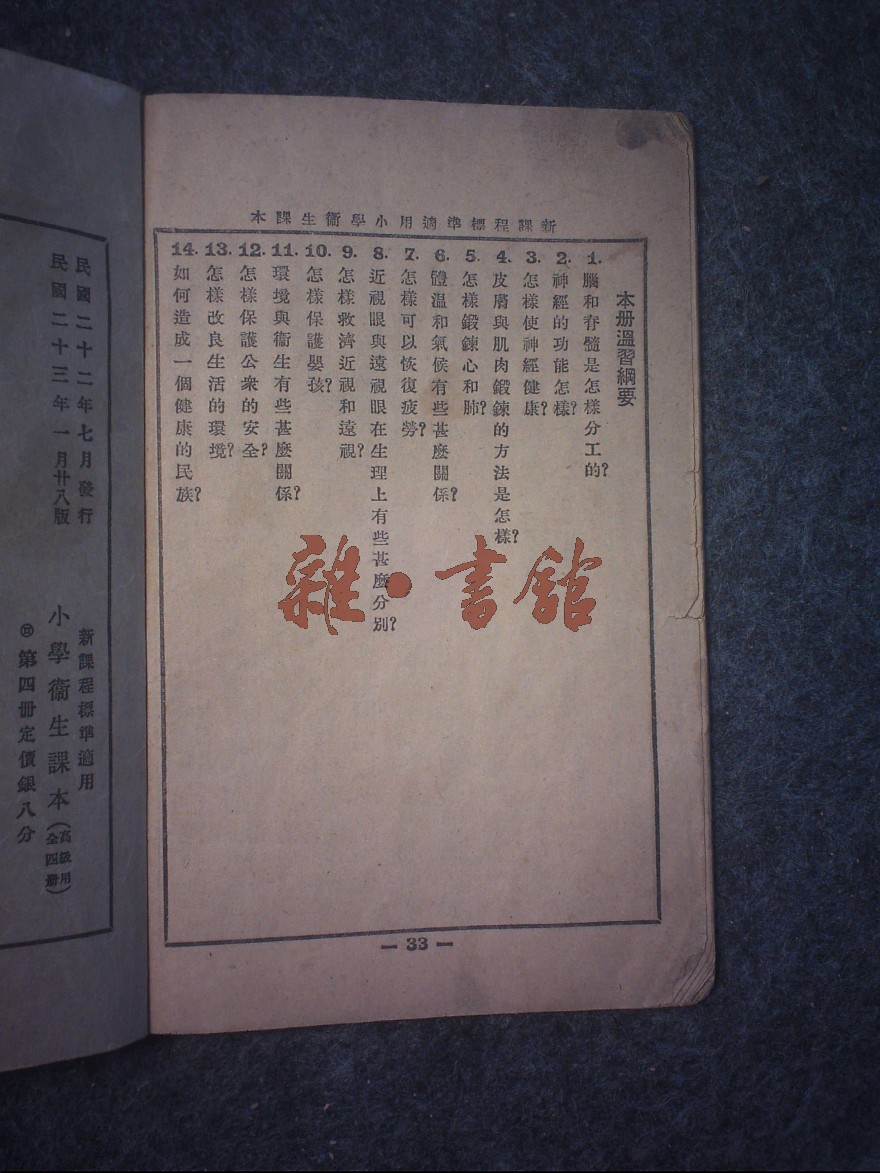 新課程標準適用小學衞生課本
本册溫習綱要
1. 腦和脊髓是怎樣分工的?
2. 神經的功能怎樣?
3. 怎樣使神經健康?
4. 皮膚與肌肉鍛鍊的方法是怎樣?
5. 怎樣鍛鍊心和肺?
6. 體溫和氣候有些甚麼關係?
7. 怎樣可以恢復疲勞?
8. 近視眼與遠視眼在生理上有些甚麼分別?
9. 怎樣救濟近視和遠視?
10. 怎樣保護嬰孩?
11. 環境與衞生有些甚麼關係?
12. 怎樣保護公衆的安全?
13. 怎樣改良生活的環境?
14. 如何造成一個健康的民族?
— 33 —
民國二十二年七月發行
民國二十三年一月廿八版
新課程標準適用
小學衞生課本(高級用全四册)
第四冊定價銀八分
雜·書館